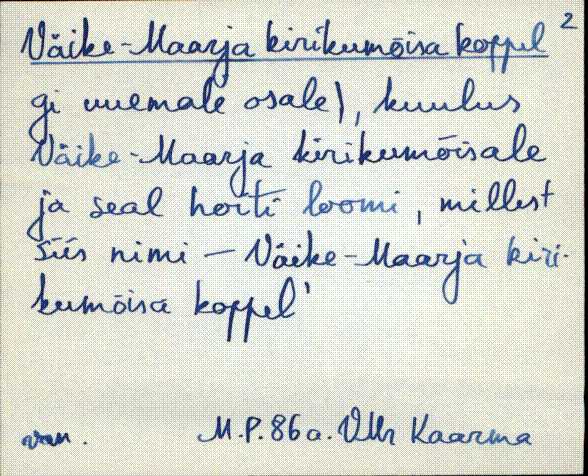 Väike-Maarja kirikumõisa koppel 2
gi uuemale osale), kuulus
Väike-Maarja kirikumõisale
ja seal hoiti loomi, millest
siis nimi – Väike-Maarja kiri-
kumõisa koppel'
M.P. 86 a. VMr Kaarma